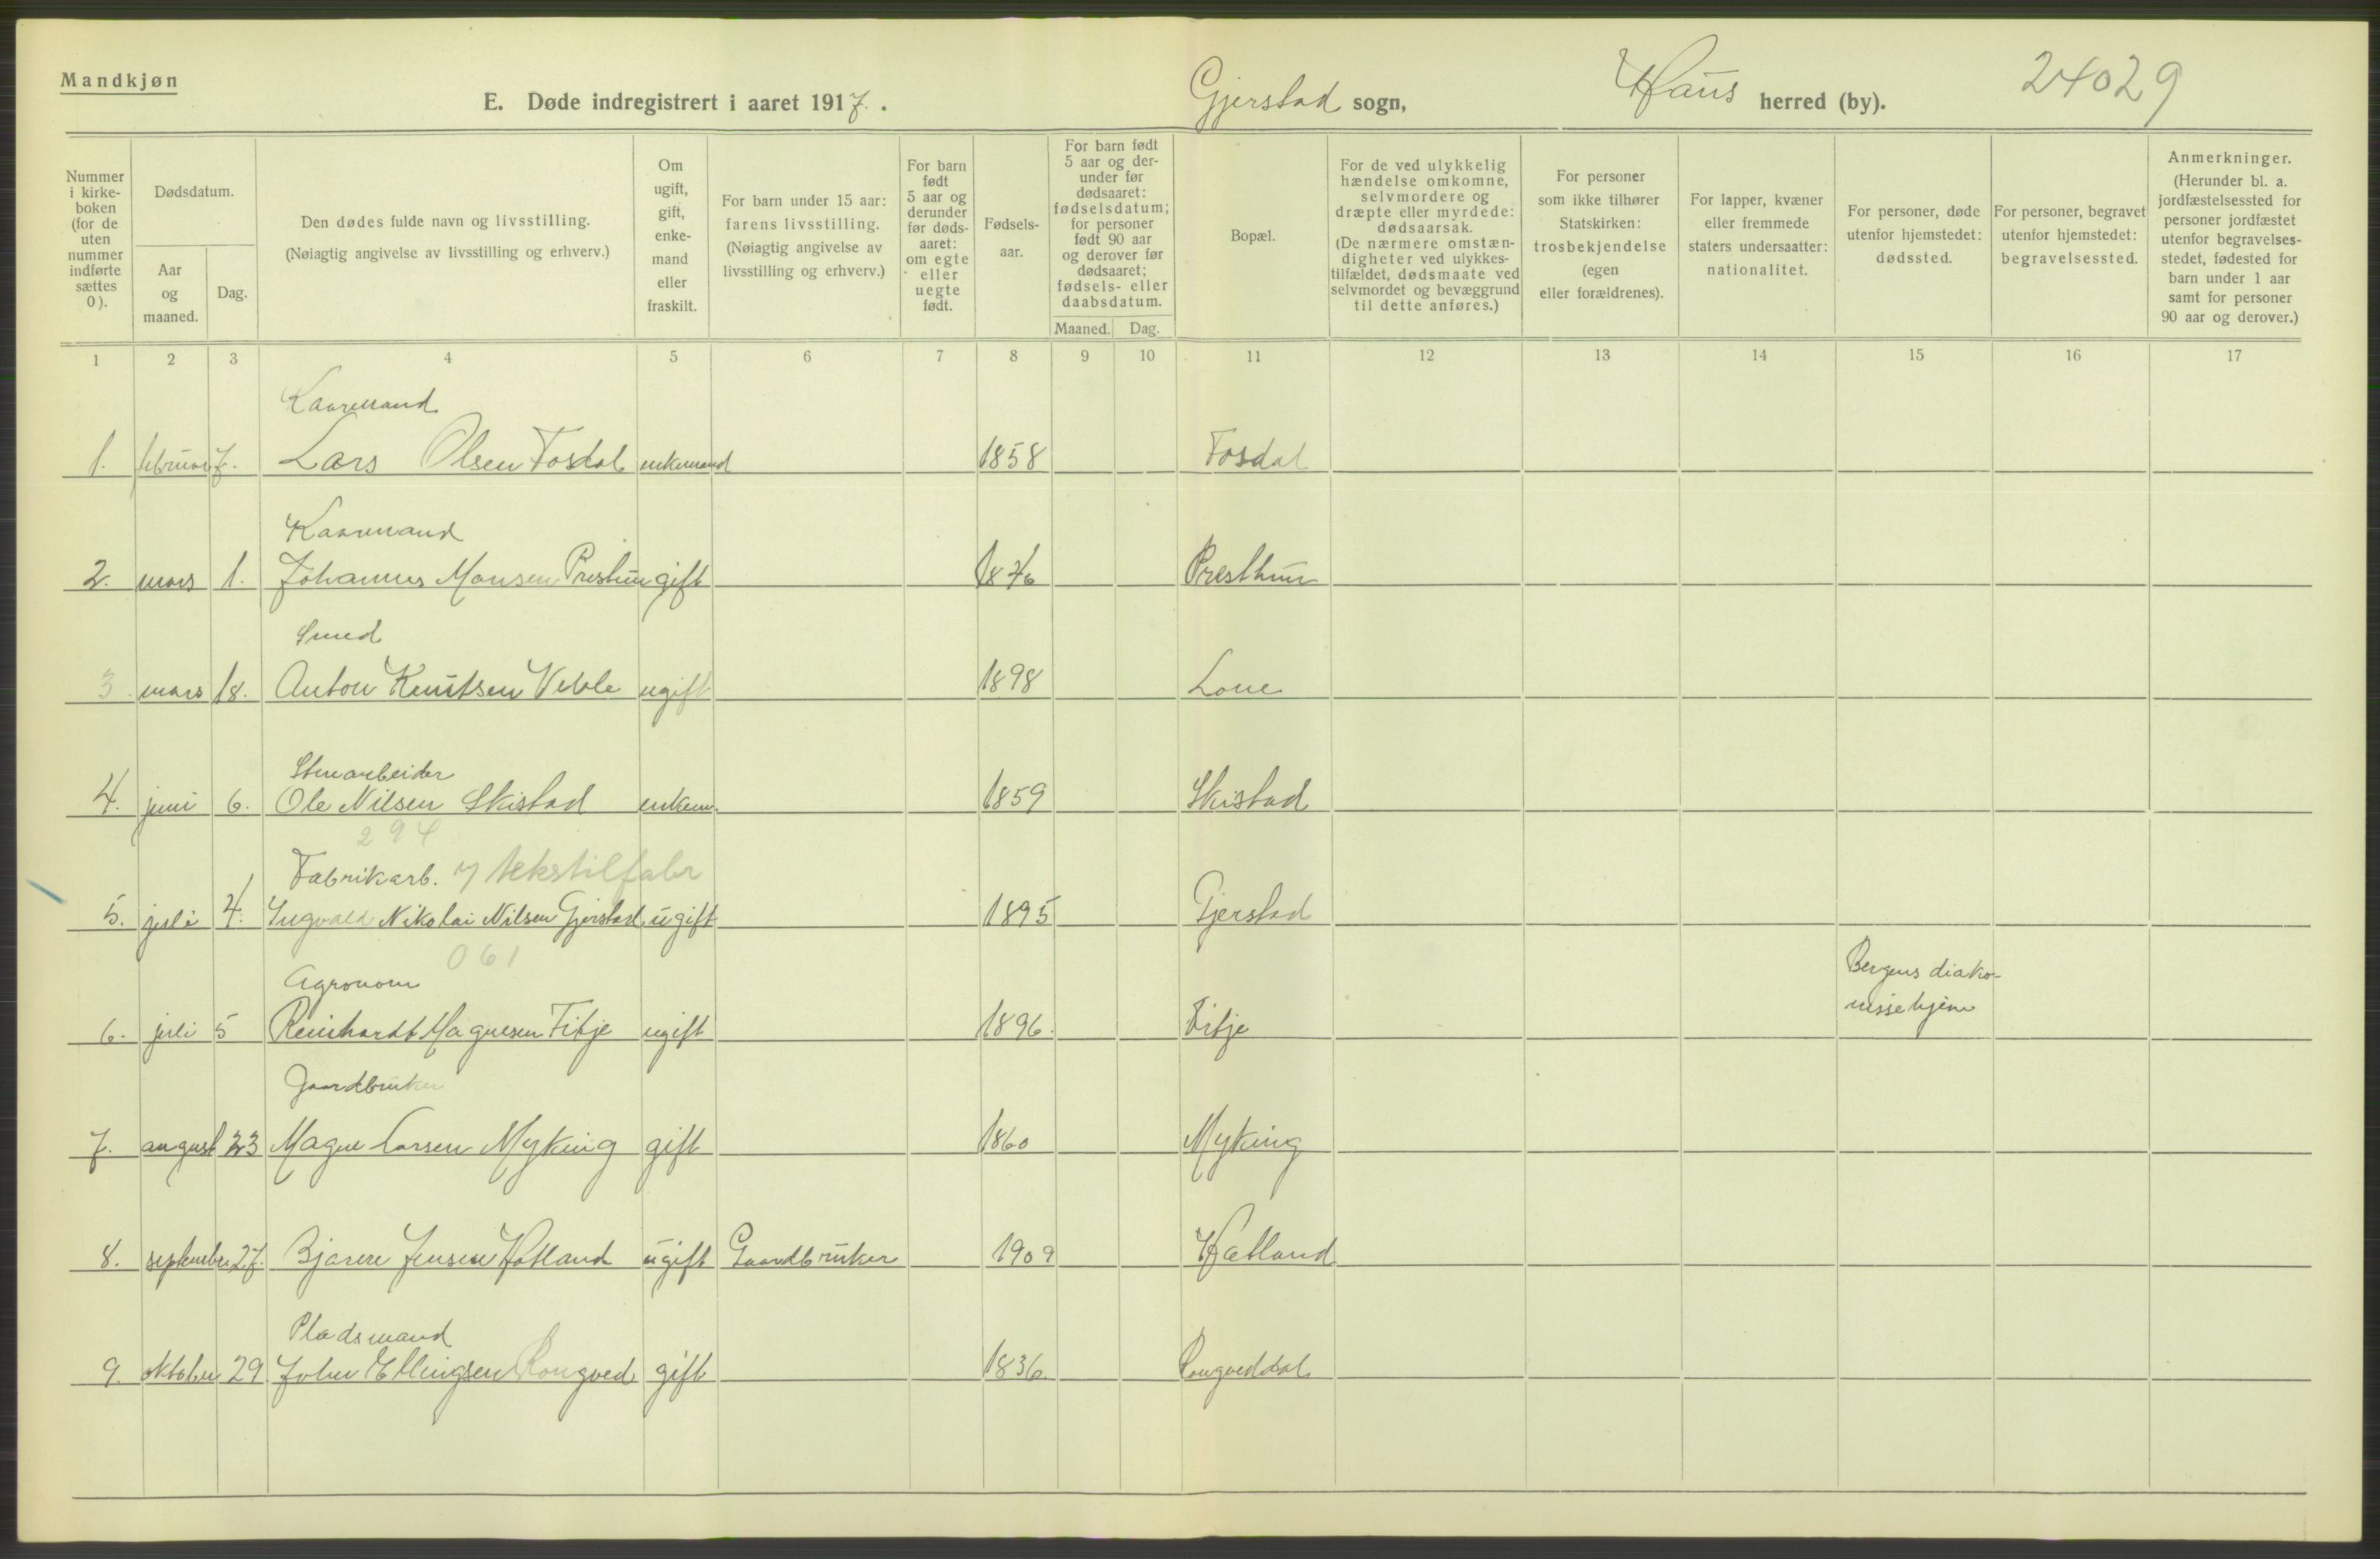 Mandkjøn
E. Døde indregistrert i aaret 1917. . Gjerstad sogn, Haus herred (by). 24029
Nummer i kirke-boken (for de uten nummer indførte sættes 0).
Dødsdatum.
Aar og maaned.
Dag.
Den dødes fulde navn og livsstilling.
(Nøiagtig angivelse av livsstilling og erhverv.)
Om ugift, gift, enke-mand eller fraskilt.
For barn under 15 aar: farens livsstilling.
(Nøiagtig angivelse av livsstilling og erhverv.)
For barn født 5 aar og derunder før døds-aaret: om egte eller uegte født.
Fødsels-aar.
For barn født 5 aar og der-under før dødsaaret: fødselsdatum; for personer født 90 aar og derover før dødsaaret; fødsels- eller daabsdatum.
Maaned. Dag.
Bopæl.
For de ved ulykkelig hændelse omkomne, selvmordere og dræpte eller myrdede: dødsaarsak.
(De nærmere omstæn-digheter ved ulykkes-tilfældet, dødsmaate ved selvmordet og bevæggrund til dette anføres.)
For personer som ikke tilhører Statskirken: trosbekjendelse (egen eller forældrenes).
For lapper, kvæner eller fremmede staters undersaatter: nationalitet.
For personer, døde utenfor hjemstedet: dødssted.
For personer, begravet utenfor hjemstedet: begravelsessted.
Anmerkninger.
(Herunder bl. a. jordfæstelsessted for personer jordfæstet utenfor begravelses-stedet, fødested for barn under 1 aar samt for personer 90 aar og derover.)
1 2 3 4 5 6 7 8 9 10 11 12 13 14 15 16 17
Kaarmand
1. februar 7. Lars Olsen Fosdal enkemand 1858 Fosdal
Kaarmand
2. mars 1. Johannes Monsen Presthun gift 1846 Presthun
Smed
3. mars 18. Anton Knutsen Veble ugift 1898 Lone
Stenarbeider
4. juni 6. Ole Nilsen Skistad enkem. 1859 Skistad
294
Fabrikarb. tekstilfabr
5. juli 4. Ingvald Nikolai Nilsen Gjerstad ugift 1895 Gjerstad
061
Agronom Bergens diako-
6. juli 5 Reinhardt Magnesen Fitje ugift 1896. Fitje nissehjem
Gaardbruker
7. august 23 Magne Larsen Myking gift 1860 Myking
8. september 27. Bjarne Jensen Hatland ugift Gaardbruker 1909 Hatland
Pladsmand
9. oktober 29 John Ellingsen Rongved gift 1836. Rongveddal